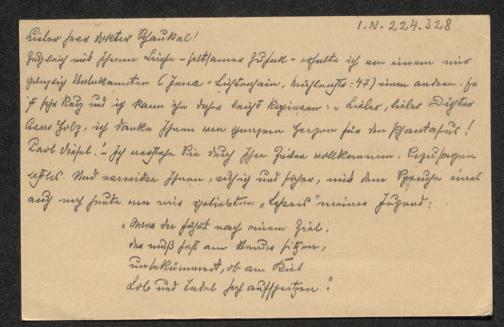 I.N. 224.328
Lieber Herr Doktor Schaukal!
Zugleich mit Ihrem Briefe – seltsamer Zufall – erhalte ich von einem mir
gänzlich Unbekannten (Jena – Lichtenhain, Mühlenstr: 47) einen andern. Er
ist sehr kurz und ich kann ihn daher leicht kopieren: „Lieber, lieber Dichter
Arno Holz, ich danke Ihnen von ganzem Herzen für den Phantasus!
Karl Diesel." – Ich verstehe Sie durch Ihre Zeilen vollkommen. Sozusagen
restlos. Und erwidre Ihnen, ruhig und sicher, mit dem Spruche eines
auch noch heute von mir geliebten „Lehrers" meiner Jugend:
„Wenn der fährt nach einem Ziel,
der muß fest am Steuer sitzen,
unbekümmert, ob am Kiel
Lob und Tadel hoch aufspritzen!"